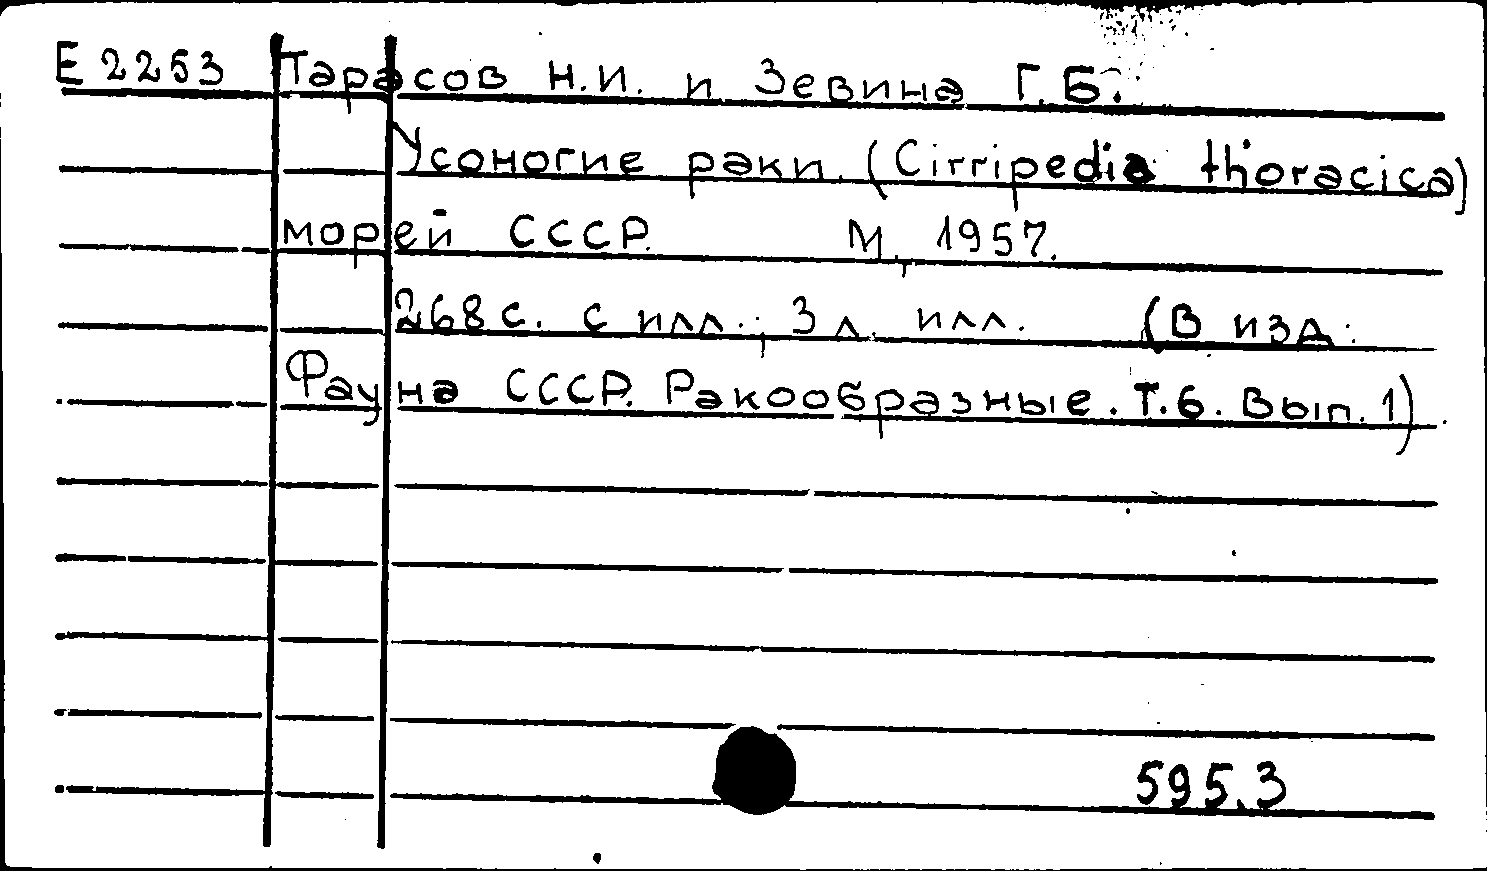 Е 2253 Тарасов Н.И. и Зевина Г.Б.
Усоногие раки (Cirripedia thoracica)
морей СССР. М., 1957.
268 с. с илл.; 3 л. илл. (В изд.
Фауна СССР. Ракообразные. Т.6. Вып. 1).
595.3